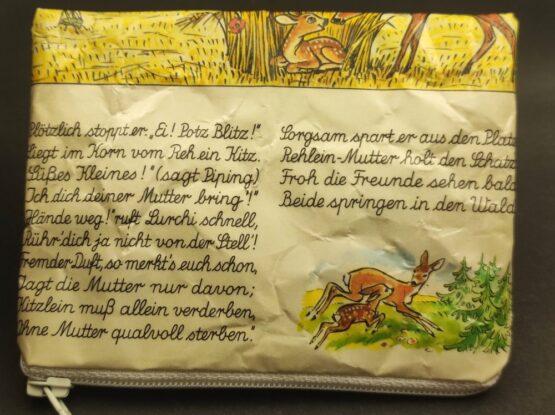 Plötzlich stoppt er: „Ei! Potz Blitz!"
Liegt im Korn vom Reh ein Kitz.
„Süßes Kleines!" (sagt Piping)
„Ich dich deiner Mutter bring'!"
„Hände weg!" ruft Lurchi schnell,
„Rühr' dich ja nicht von der Stell'!
Fremder Duft, so merkt's euch schon,
Jagt die Mutter nur davon;
Kitzlein muß allein verderben,
Ohne Mutter qualvoll sterben."
Sorgsam spart er aus den Platz
Rehlein-Mutter holt den Schatz
Froh die Freunde sehen bald
Beide springen in den Wald